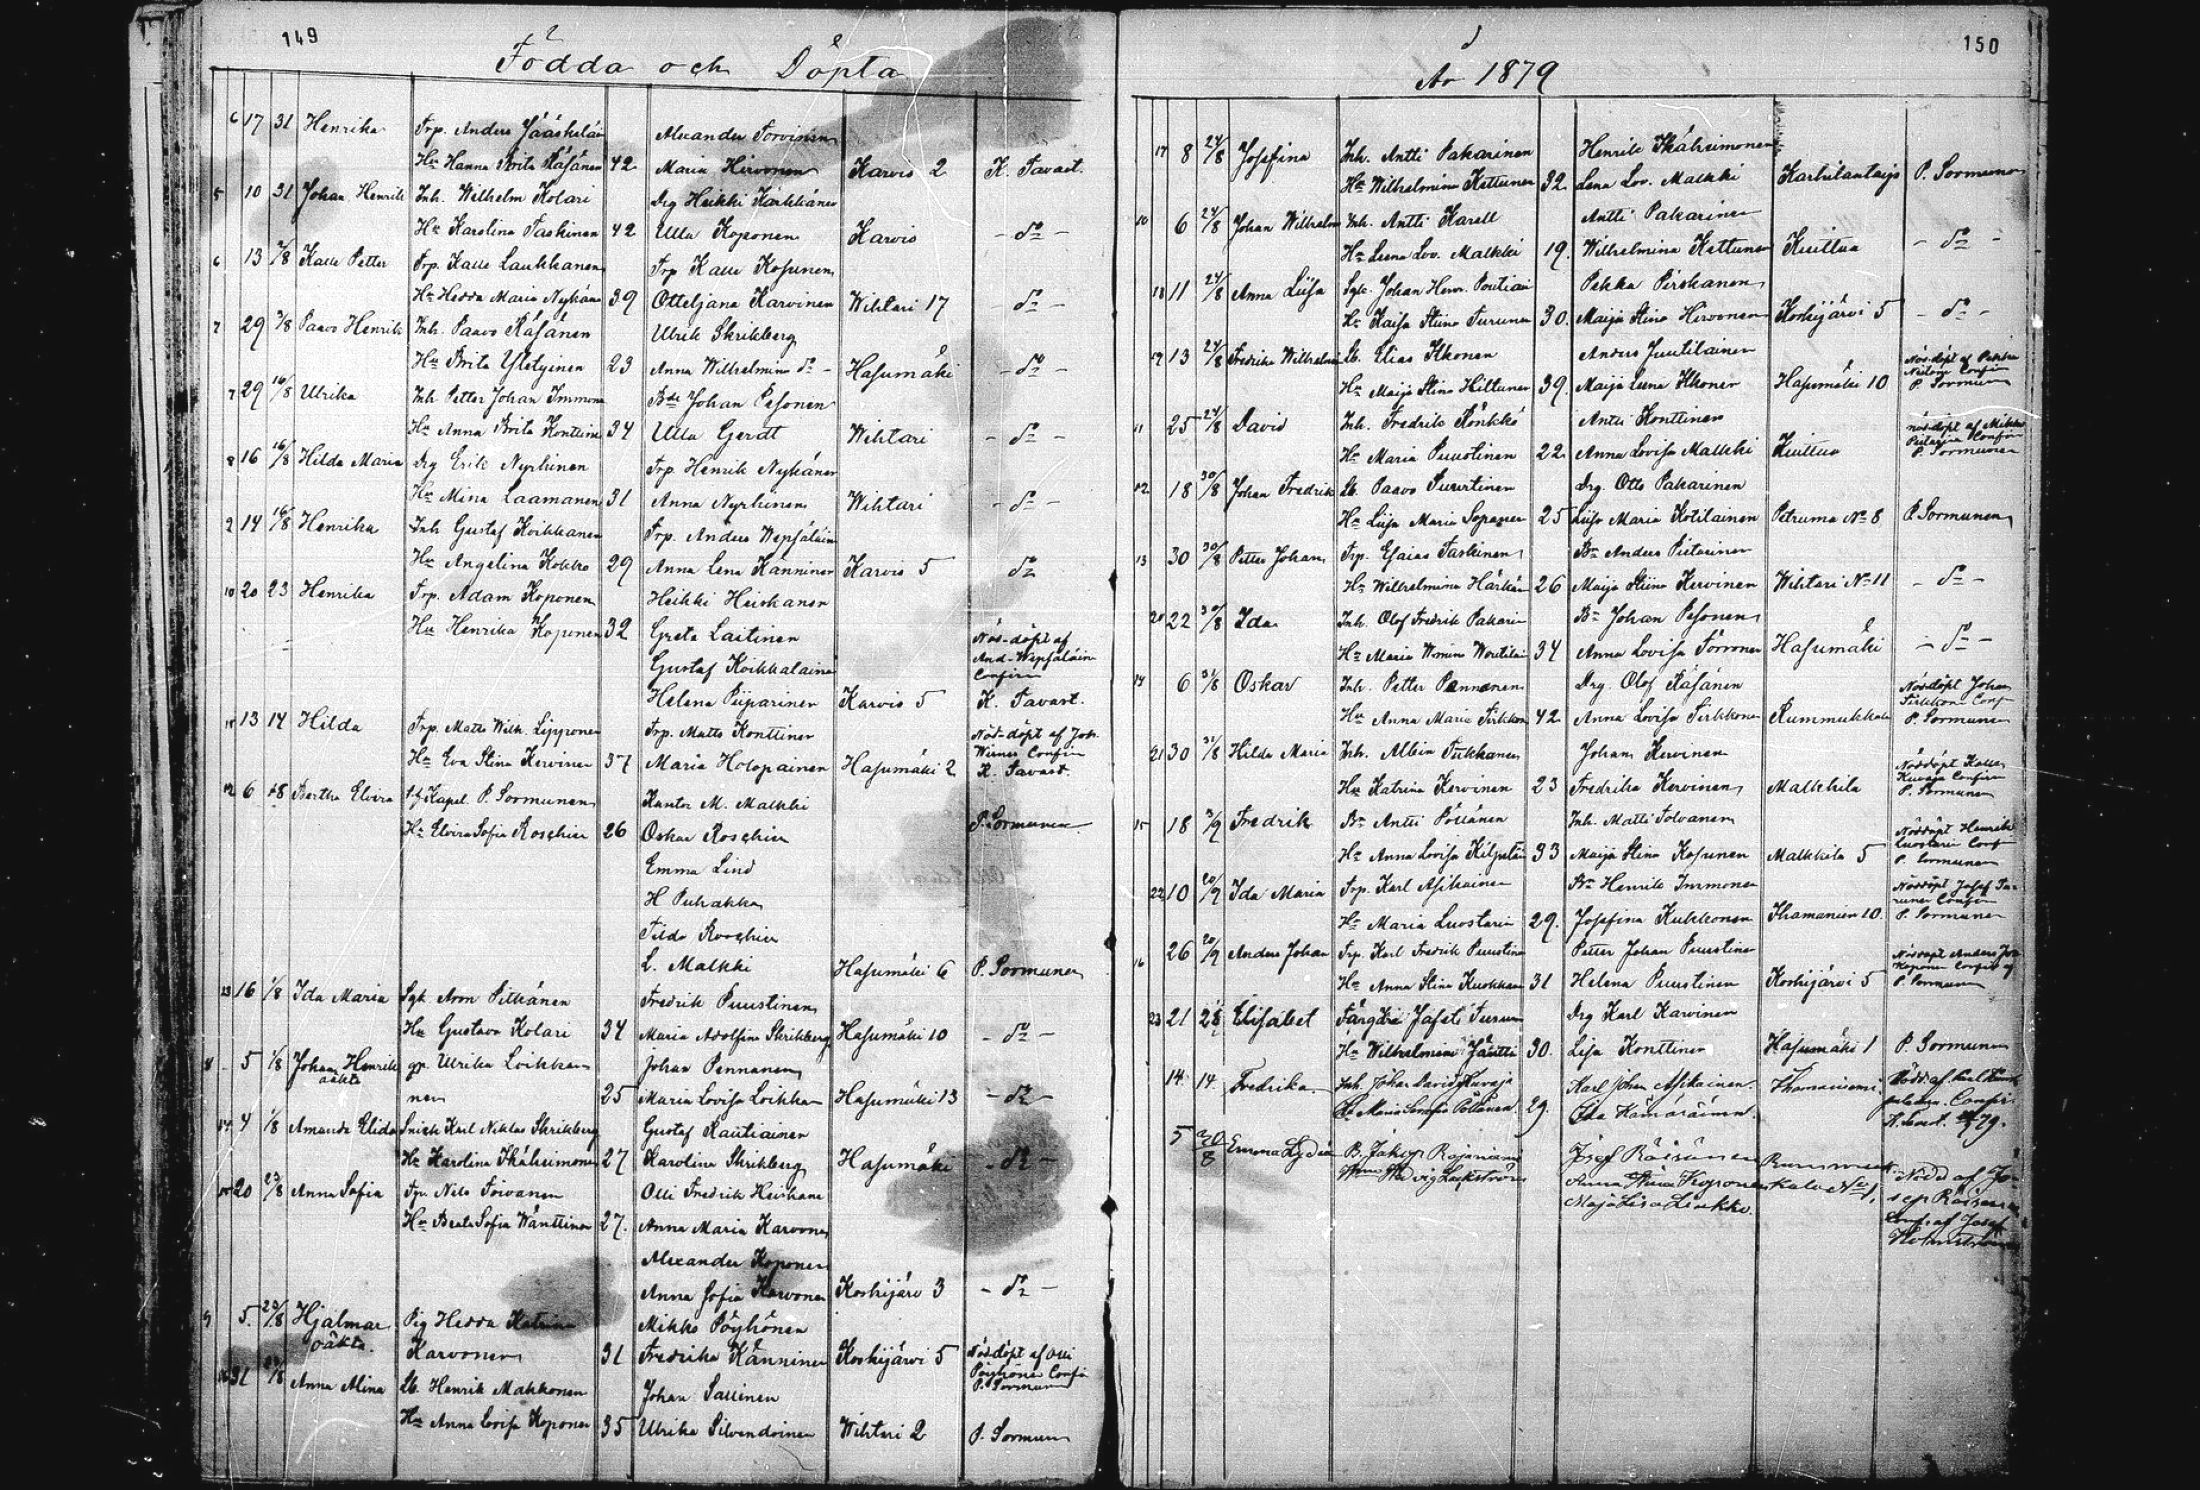 149
Födda och Döpta
6 17 31 Henrika Trp. Anders Jääskeläin Alexander Torvinen
Hu Hanna Brita Räsänen 42 Maria Hirvonen Karvio 2 K. Tavast.
5 10 31 Johan Henrik Inh. Wilhelm Kolari Drg Heikki Kärkkänen
Hu Karolina Taskinen 42 Ulla Koponen Karvio - do -
6 13 /8 Kalle Petter Trp. Kalle Laukkanen Trp Kalle Kosunen
Hu Hedda Maria Nykänen 39 Otteljana Karvinen Wihtari 17 do
7 29 /8 Paavo Henrik Inh. Paavo Räsänen Ulrik Skrikberg
Hu Brita Yletyinen 23 Anna Wilhelmina do - Hasumäki - do -
7 29 16/8 Ulrika Inh Petter Johan Immonen Bde Johan Pesonen
Hu Anna Brita Konttinen 34 Ulla Gerdt Wihtari - do -
8 16 16/8 Hilda Maria Drg Erik Nyrhinen Trp. Henrik Nykänen
Hu Mina Laamanen 31 Anna Nyrhinen Wihtari - do -
2 14 16/8 Henrika Inh Gustaf Koikkanen Trp. Anders Wepsäläin
Hu Angelina Kokko 29 Anna Lena Kanninen Karvio 5 do
10 20 23 Henrika Trp. Adam Koponen Heikki Heiskanen
Hu Henrika Koponen 32 Greta Laitinen Nöd-döpt af
Gustaf Koikkalainen And. Wepsäläin
Confirm
Helena Piiparinen Karvio 5 K. Tavast.
11 13 14 Hilda Trp. Matts Wilh. Lipponen Trp. Matts Konttinen Nöd-döpt af Joh.
Hu Eva Stina Kervinen 37 Maria Holopainen Hasumäki 2 Confir
K. Tavast.
12 6 18 Bertha Elvira Kapel. P. Sormunen Kantor M. Malkki
Hu Elvira Sofia Roschier 26 Oskar Roschier P. Sormunen
Emma Lind
H Puhakka
Tilda Roschier
L. Malkki Hasumäki 6 P. Sormunen
13 16 /8 Ida Maria Sgk Aron Pitkänen Fredrik Puustinen
Hu Gustava Kolari 34 Maria Adolfina Skrikberg Hasumäki 10 - do -
8 5 /8 Johan Henrik Ulrika Loikka Johan Pennanen
oäkta nen 25 Maria Lovisa Loikka Hasumäki 13 - do -
14 4 /8 Amanda Elida Snick Karl Niklas Skrikberg Gustaf Rautiainen
Hu Karolina Ikäheimonen 27 Karolina Skrikberg Hasumäki - do -
15 20 23/8 Anna Sofia Trp. Nils Toivanen Olli Fredrik Heiskane
Hu Beata Sofia Wänttinen 27. Anna Maria Karvonen
Alexander Koponen
Anna Sofia Karvonen Koskijärv 3 - do -
9 5. 23/8 Hjalmar Pig Hedda Katrina Mikko Pöyhönen
oäkta. Karvonen 31 Fredrika Känninen Koskijärvi 5 Nöddöpt af Olli
Pöyhönen Confir
P. Sormunen
16 31 /8 Anna Alina Lb. Henrik Makkonen Johan Sallinen
Hu Anna Lovisa Koponen 35 Ulrika Silvendoinen Wihtari 2 P. Sormunen
150
År 1879
17 8 24/8 Josefina Inh. Antti Pakarinen Henrik Ikäheimonen
Hu Wilhelmina Kettunen 32. Lena Lov. Malkki Karhilantaip P. Sormunen
10 6 24/8 Johan Wilhelm Inh. Antti Karell Antti Pakarinen
Hu Leena Lov. Malkki 19. Wilhelmina Kettunen Kuittua - do -
18 11 24/8 Anna Liisa Sgk. Johan Henr. Poutiai Pekka Pirskanen
Hu Kaisa Stiina Turunen 30. Maija Stina Hirvonen Koskijärvi 5 - do -
19 13 24/8 Fredrika Wilhelmi Lb. Elias Ikonen Anders Juutilainen Nöd-döpt af Pekka
Confir
Hu Maija Stina Hiltunen 39. Maija Leena Ikonen Hasumäki 10 P Sormunen
11 25 24/8 David Inh. Fredrik Rönkkö Antti Konttinen nöddöpt af Mikko
Confir
Hu Maria Puustinen 22. Anna Lovisa Malkki Kuittua P. Sormunen
12 18 30/8 Johan Fredrik Lb. Paavo Suurtinen Drg. Otto Pakarinen
Hu Liisa Maria Sopanen 25 Liisa Maria Kotilainen Petruma No 8 P. Sormunen
13 30 30/8 Petter Johan Trp. Esaias Taskinen Bn Anders Pietarinen
Hu Wilhelmina Härkön 26 Maija Stiina Kervinen Wihtari No 11 - do -
20 22 30/8 Ida Inh. Olof Fredrik Pakarin Bn Johan Pesonen
Hu Maria Wmina Woutilai 34 Anna Lovisa Torvonen Hasumäki - do -
14 6 31/8 Oskar Inh. Petter Pennanen Drg. Olof Räsänen Nöddöpt Johan
Tirkkonen Conf
Hu Anna Maria Tirkkon 42 Anna Lovisa Tirkkonen Rummukkala P. Sormunen
21 30 31/8 Hilda Maria Inh. Albin Tukkanen Johan Kervinen Nöddöpt Kalle
Kuvaja Confirm
Hu Katrina Kervinen 23 Fredrika Kervinen Malkkila P. Sormunen
15 18 /9 Fredrik Bn Antti Pöllänen Inh. Matti Tolvanen Nöddöpt Henrik
Luostarin Conf
Hu Anna Lovisa Kilpeläi 33 Maija Stina Kosunen Malkkila 5 P. Sormunen
22 10 20/9 Ida Maria Trp. Karl Asikainen Bn Henrik Immonen Nöddöpt Josef Tu-
runen Confir
Hu Maria Luostarin 29. Josefina Kukkonen Ihamaniem 10. P. Sormunen
16 26 20/9 Anders Johan Trp. Karl Fredrik Puustine Petter Johan Puustinen Nöddöpt Anders Joh
Koponen Confir af
Hu Anna Stina Kuokkan 31 Helena Puustinen Koskijärvi 5 P. Sormunen
23 21 Elisabet Färgare Jafeti Turunen Drg Karl Karvinen
Hu Wilhelmina Jäntti 30. Lisa Konttinen Hasumäki 1 P. Sormunen
14 14. Fredrika Inh. Johan David Kuvaja Karl Johan Asikainen. Ihamaniemi. Nödd. af Karl
Confir.
Hu Maria Serafia Pöllänen. 29. Ida Hämäläinen. 79.
5 30/8 Emma Lydia B. Jakop Rajaniemi Josef Räisänen Rummuk Nödd af Jo-
Hedvig Lackström Anna Stina Koponen kala No 1. sep Räisänen
Maja Lisa Liukko. Conf. af Josef
Holmström